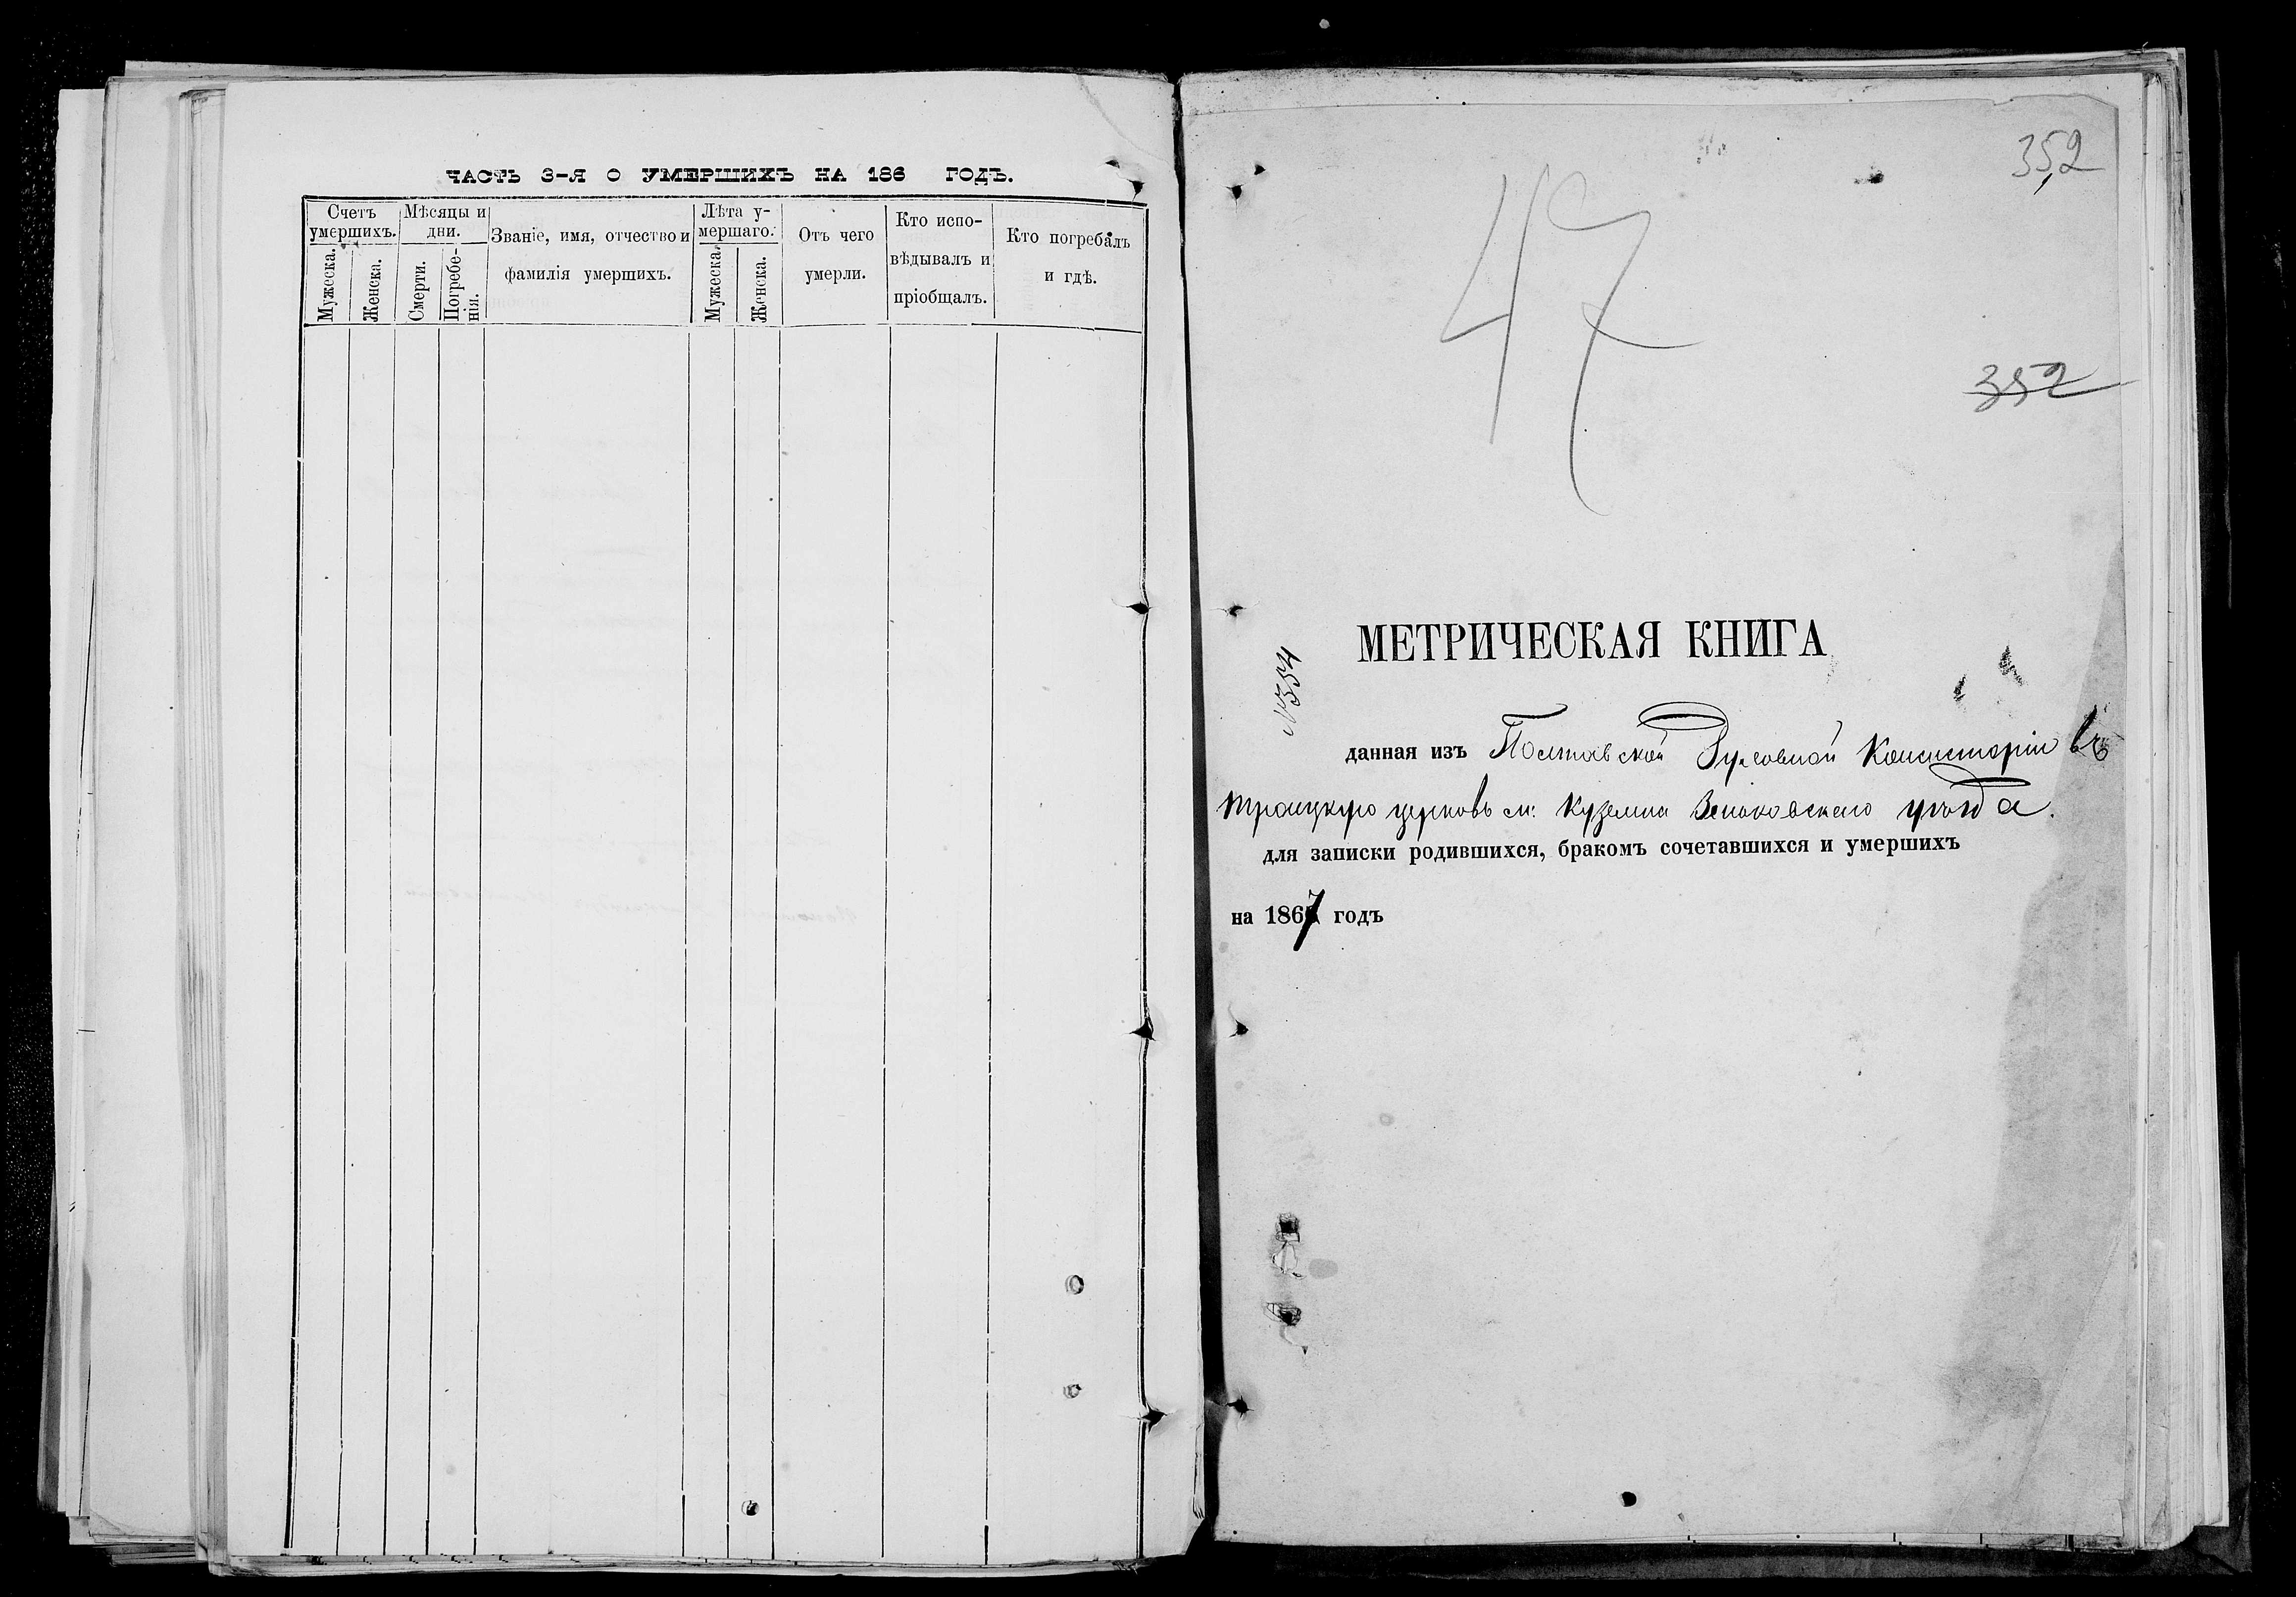 ЧАСТЬ 3-Я О УМЕРШИХЪ НА 186 ГОДЪ.
Счетъ умершихъ.
Мужеска.
Женска.
Мѣсяцы и дни.
Смерти.
Погребе-
нія.
Званіе, имя, отчество и
фамилія умершихъ.
Лѣта у-
мершаго.
Мужеска.
Женска.
Отъ чего
умерли.
Кто испо-
вѣдывалъ и
пріобщалъ.
Кто погребалъ
и гдѣ.
352
47
352
МЕТРИЧЕСКАЯ КНИГА
№354
данная изъ Полтавской Духовной Консисторіи въ
Троицкую церковь м: Куземина Зеньковскаго уѣзда.
для записки родившихся, бракомъ сочетавшихся и умершихъ
на 1867 годъ